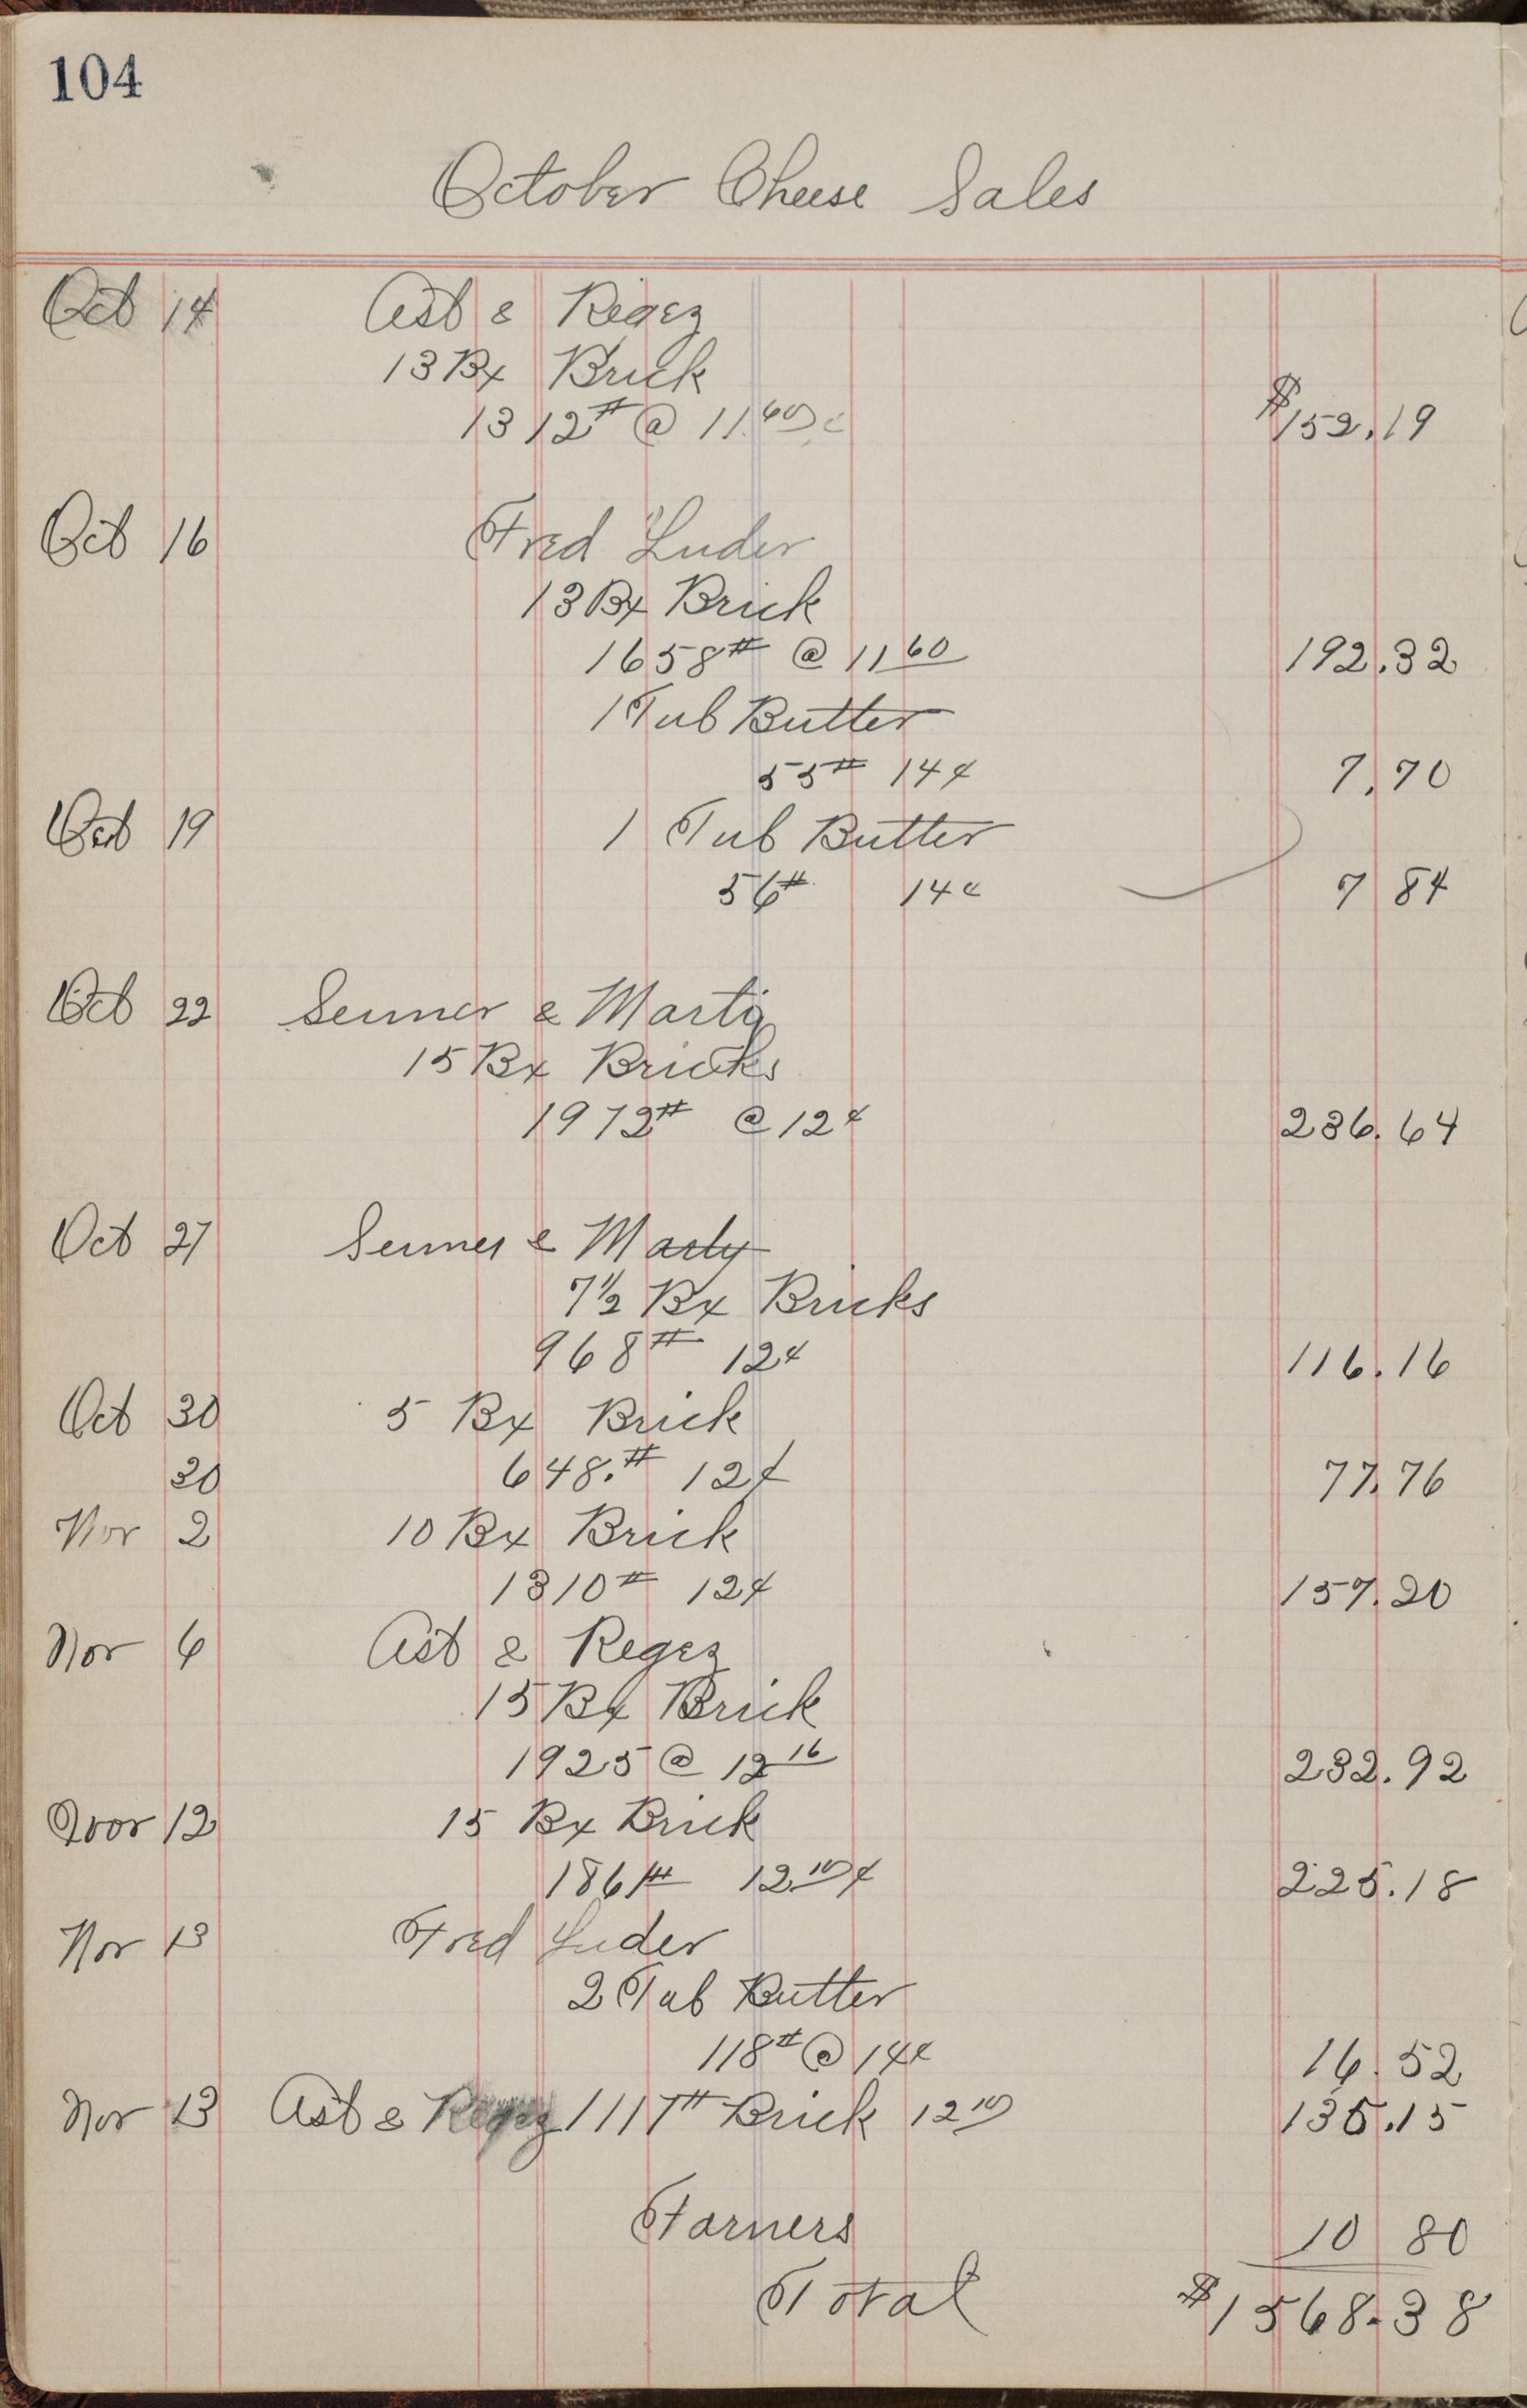 104
October Cheese Sales
Oct 14 Ast & Regez
13 Bx Brick
1312# @ 11.60 c $152.19
Oct 16 Fred Luder
13 Bx Brick
1658# @ 11 60 192.32
1 Tub Butter
55# 14¢ 7.70
Oct 19 1 Tub Butter
56# 14¢ 7 84
Oct 22 & Marty
15 Bx Bricks
1972# @ 12¢ 236.64
Oct 27 & Marty
7 1/2 Bx Bricks
968# 12¢ 116.16
Oct 30 5 Bx Brick
30 648.# 12¢ 77.76
Nov 2 10 Bx Brick
1310# 12¢ 157.20
Nov 6 Ast & Regez
15 Bx Brick
1925 @ 12 16 232.92
Nov 12 15 Bx Brick
1861# 12.10¢ 225.18
Nov 13 Fred Luder
2 Tub Butter
118# @ 14¢ 16.52
Nov 13 Ast & Regez 1117# Brick 12 10 135.15
Farners 10 80
Total $1568.38